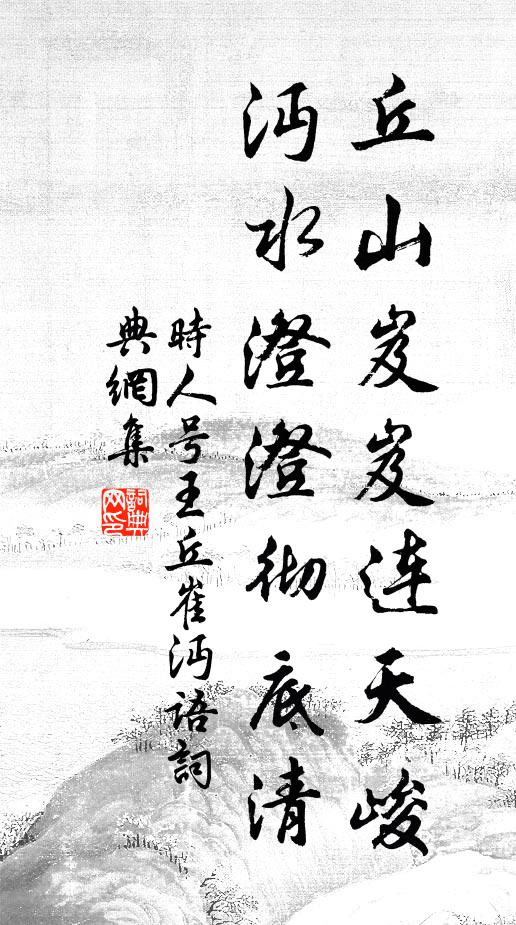 丘山岌岌连天峻
沔水澄澄彻底清
時人号王丘崔沔语詞
典網集
詞典網印